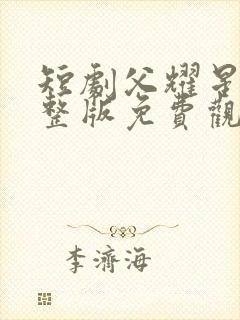 短劇父耀星
整版免費觀
李濟海